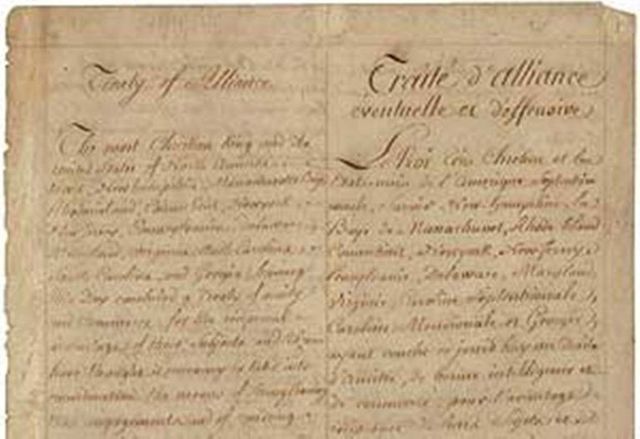 Treaty of Alliance
The most Christian King and the
United States of North America
Massachusetts Bay
Connecticut, Newyork
New Jersey, Pennsylvania, Delaware
Maryland, Virginia, North Carolina
South Carolina, and Georgia having
this Day concluded a Treaty of amity
and Commerce, for the reciprocal
advantage of their Subjects and
have thought it necessary to take into
consideration the means of strengthening
engagements and of
Traité d'alliance
eventuelle et deffensive
Le Roi très Chretien et les
Etats unis de l'Amerique Septentrio
Newhampshire, la
Baye de Massachuset, Rhode Island
Connecticut, Newyork, New Jersey
Pensylvanie, Delaware, Maryland
Virginie, Caroline Septentrionale
Caroline Meridionale et Georgie
ayant conclu ce jourd'huy un Traité
d'amitié, de bonne intelligence et
de commerce, pour l'avantage
de leurs Sujets et